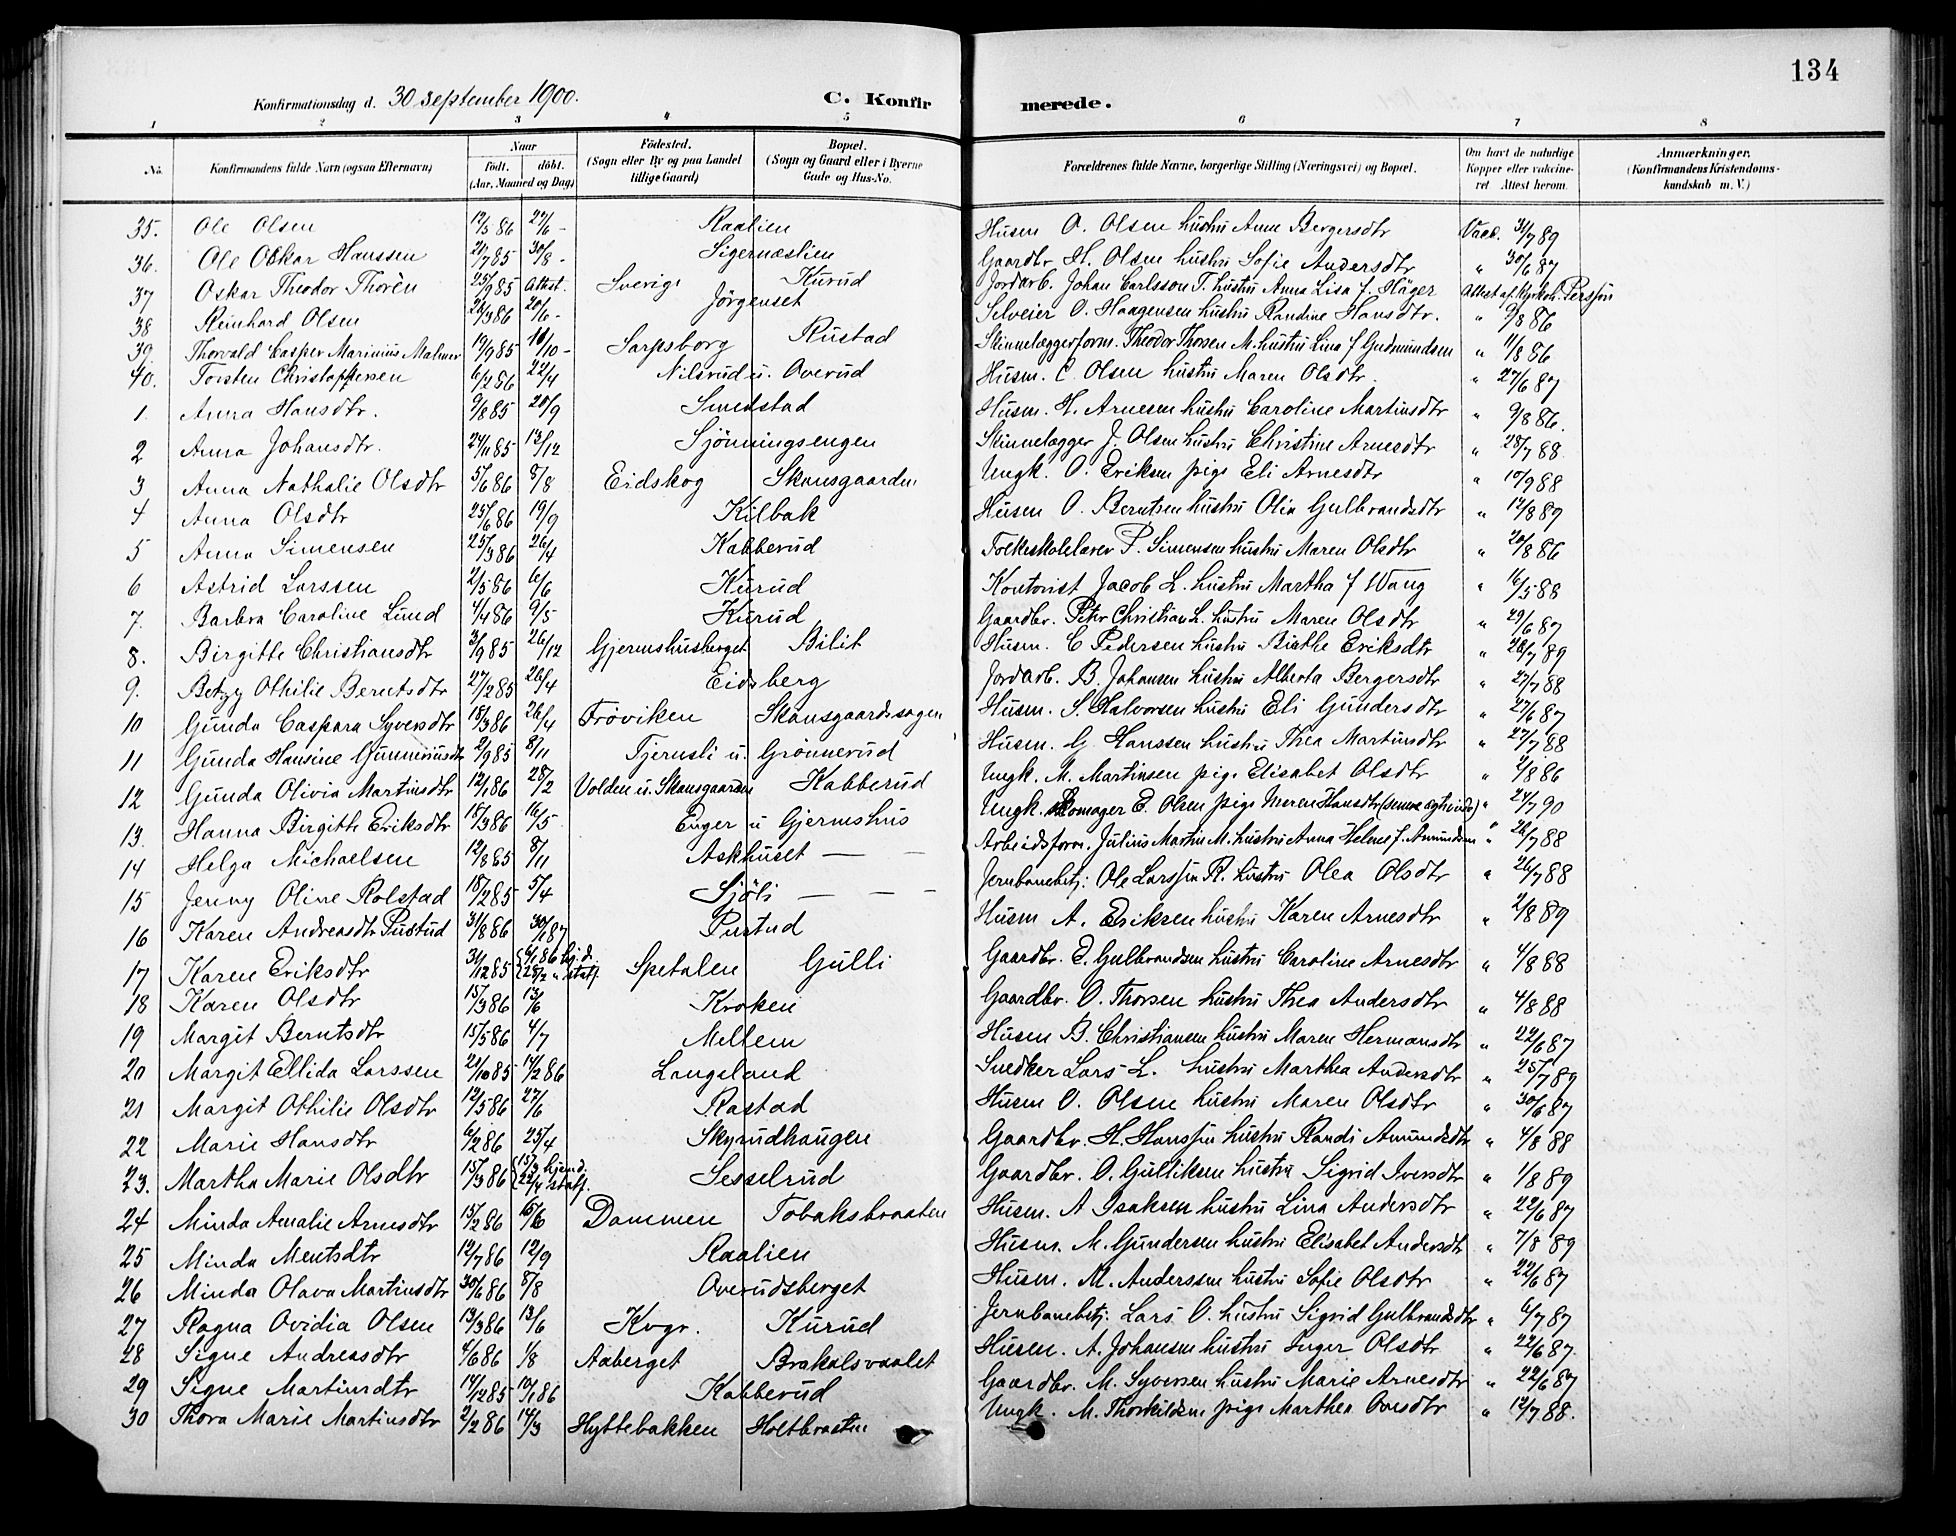 134
Konfirmationsdag d. 30 september 1900. C. Konfirmerede.
1 2 3 4 5 6 7 8
No. Konfirmandens fulde Navn (ogsaa Efternavn) Naar født. døbt. (Aar, Maaned og Dag) Fødested. (Sogn eller By og paa Landet tillige Gaard) Bopæl. (Sogn og Gaard eller i Byerne Gade og Hus-No. Forældrenes fulde Navne, borgerlige Stilling (Næringsvei) og Bopæl. Om havt de naturlige Kopper eller vakcineret Attest herom. Anmærkninger. (Konfirmandens Kristendomskundskab m. V.)
35. Ole Olsen 12/5 86 27/6 - Raalien Husm O. Olsen hustru Anne Bergersdtr Vacc. 31/7 89
36. Ole Oskar Hanssen 21/7 85 30/8 - Sigernæslien Gaardbr H. Olsen hustru Sofie Andersdtr " 30/6 87
37 Oskar Theodor Thorèn 25/9 85 Attest. Sverige Kurud Jordarb. Johan Carlsson T. hustru Anna Lisa f. Häger Attest af Kyrkoh. Persson
38 Reinhard Olsen 26/3 86 20/6 - Jörgenset Selveier O. Haagensen hustru Randine Hansdtr. " 9/8 86
39. Thorvald Casper Marinius Malmer 19/9 85 18/10 - Sarpsborg Rustad Skinnelæggerform. Theodor Thorsen M. hustru Lina f Gudmundsen " 11/8 86
40. Torsten Christoffersen 6/2 86 22/4 Nilsrud u. Overud Husm. C. Olsen hustru Maren Olsdtr. " 27/6 87
1. Anna Hansdtr. 9/8 85 20/9 Smedstad Husm. H. Arnesen hustru Caroline Martinsdtr " 9/8 86.
2 Anna Johansdtr. 24/11 85 13/12 Sjönningsengen Skinnelægger J. Olsen hustru Christine Arnesdtr " 28/7 88
3 Anna Nathalie Olsdtr 5/6 86 8/8 Eidskog Skansgaarden Ungk. O. Eriksen pige Eli Arnesdtr " 10/9 88
4 Anna Olsdtr 25/6 86 19/9 Kilbak Husm O. Berntsen hustru Olia Gulbrandsdtr " 12/8 89
5 Anna Simensen 25/3 86 26/4 Kabberud Folkeskolelærer P. Simensen hustru Maren Olsdtr " 20/8 86
6 Astrid Larssen 2/5 86 6/6 Kurud Kontorist Jacob L. hustru Martha f Wang " 16/5 88
7. Barbra Caroline Lund 4/4 86 9/5 Kurud Gaardbr. Peter Christian L. hustru Maren Olsdtr " 29/6 87
8. Birgitte Christiansdtr 3/9 85 26/12 Gjermshusberget Bilit Husm. C Pedersen hustru Birthe Eriksdtr " 26/7 89
9. Betzy Othilie Berntsdtr 27/2 85 26/4 Eidsberg Jordarb. B. Johansen hustru Alberta Bergersdtr " 27/7 88
10 Gunda Caspara Syversdtr 18/3 86 26/4 Fröviken Skansgaardssagen Husm. S. Halvorsen hustru Eli Gundersdtr " 27/6 87
11 Gunda Hansine Gunneriusdtr 2/9 85 8/11 Tjernsli u. Grönnerud Husm. G. Hanssen hustru Thea Martinsdtr " 27/7 88
12 Gunda Olivia Martinsdtr 12/1 86 28/2 Volden u. Skansgaarden Kabberud Ungk. M. Martinsen pige Elisabet Olsdtr " 2/8 86
13. Hanna Birgitte Eriksdtr 18/3 86 16/5 Enger u Gjermshus Ungk. Skomager E. Olsen pige Maren Hansdtr " 24/7 90
14 Helga Michaelsen 12/8 85 8/11 Askhuset — — Arbeidsform. Julius Martin M. hustru Anna Helene f. Amundsen " 26/7 88
15 Jenny Oline Rolstad 18/2 85 5/4 Sjöli — — — Jernbanebetj: Ole Larssen R. hustru Olea Olsdtr " 26/7 88
16 Karen Andreasdtr Pustud 31/8 86 30/1 87 Pustud Husm A. Eriksen hustru Karen Arnesdtr " 2/8 89
17 Karen Eriksdtr 31/12 85 6/1 86 hj.d. 28/2 i. staf Spetalen Gulli Gaardbr. E. Gulbrandsen hustru Caroline Arnesdtr " 4/8 88
18 Karen Olsdtr 15/3 86 13/6 Kroken Gaardbr. O. Thorsen hustru Thea Andersdtr " 4/8 88
19 Margit Berntsdtr 15/5 86 4/7 Mellem Husm B. Christiansen hustru Maren Hermansdtr " 22/6 87
20 Margit Ellida Larssen 21/10 85 14/2 86 Langeland Snedker Lars L. hustru Marthea Andersdtr " 25/7 89
21 Margit Othilie Olsdtr 12/5 86 27/6 Rastad Husm O. Olsen hustru Maren Olsdtr " 30/6 87
22 Marie Hansdtr 6/2 86 25/4 Skyrudhaugen Gaardbr. H. Hanssen hustru Randi Amundsdtr " 4/8 88
23. Martha Marie Olsdtr 15/3 86 15/3 hjemd. 22/4 staf. Sesselrud Gaardbr. O. Gulliksen hustru Sigrid Iversdtr " 1/8 89
24 Minda Amalie Arnesdtr 15/2 86 6/6 Dammen Tobaksbraaten Husm. A Isaksen hustru Lina Andersdtr " 22/6 87
25 Minda Mentsdtr 12/7 86 12/9 Raalien Husm. M. Gundersen hustru Elisabet Andersdtr " 7/8 89
26 Minda Olava Martinsdtr 30/6 86 8/8 Overudsberget Husm. M. Anderssen hustru Sofie Olsdtr " 22/6 87
27 Ragna Ovidia Olsen 13/3 86 13/6 Kvgr. Kurud Jernbanebetj: Lars O. hustru Sigrid Gulbrandsdtr " 6/7 87
28 Signe Andreasdtr 4/6 86 1/8 Aaberget Brakalsvaalet Husm. A. Johansen hustru Inger Olsdtr " 22/6 87.
29 Signe Martinsdtr 14/12 85 10/1 86 Kabberud Gaardbr. M. Syversen hustru Marie Arnesdtr " 22/6 87
30 Thora Marie Martinsdtr 2/2 86 14/3 Hyttebakken Holtbraaten Ungk. M. Thorkildsen pige Marthea Ovesdtr " 12/7 88.